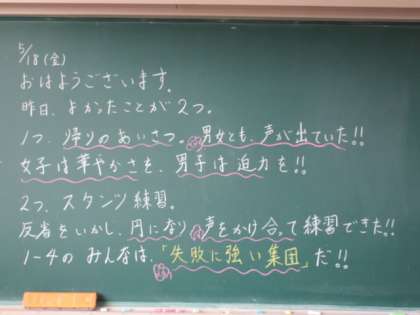 5/18(金)
おはようございます。
昨日、よかったことが2つ。
1つ、帰りのあいさつ。男女とも、声が出ていた!!
女子は華やかさを、男子は迫力を!!
2つ、スタンツ練習。
反省をいかし、円になり声をかけ合って練習できた!!
1-4の みんなは、「失敗に強い集団」だ!!